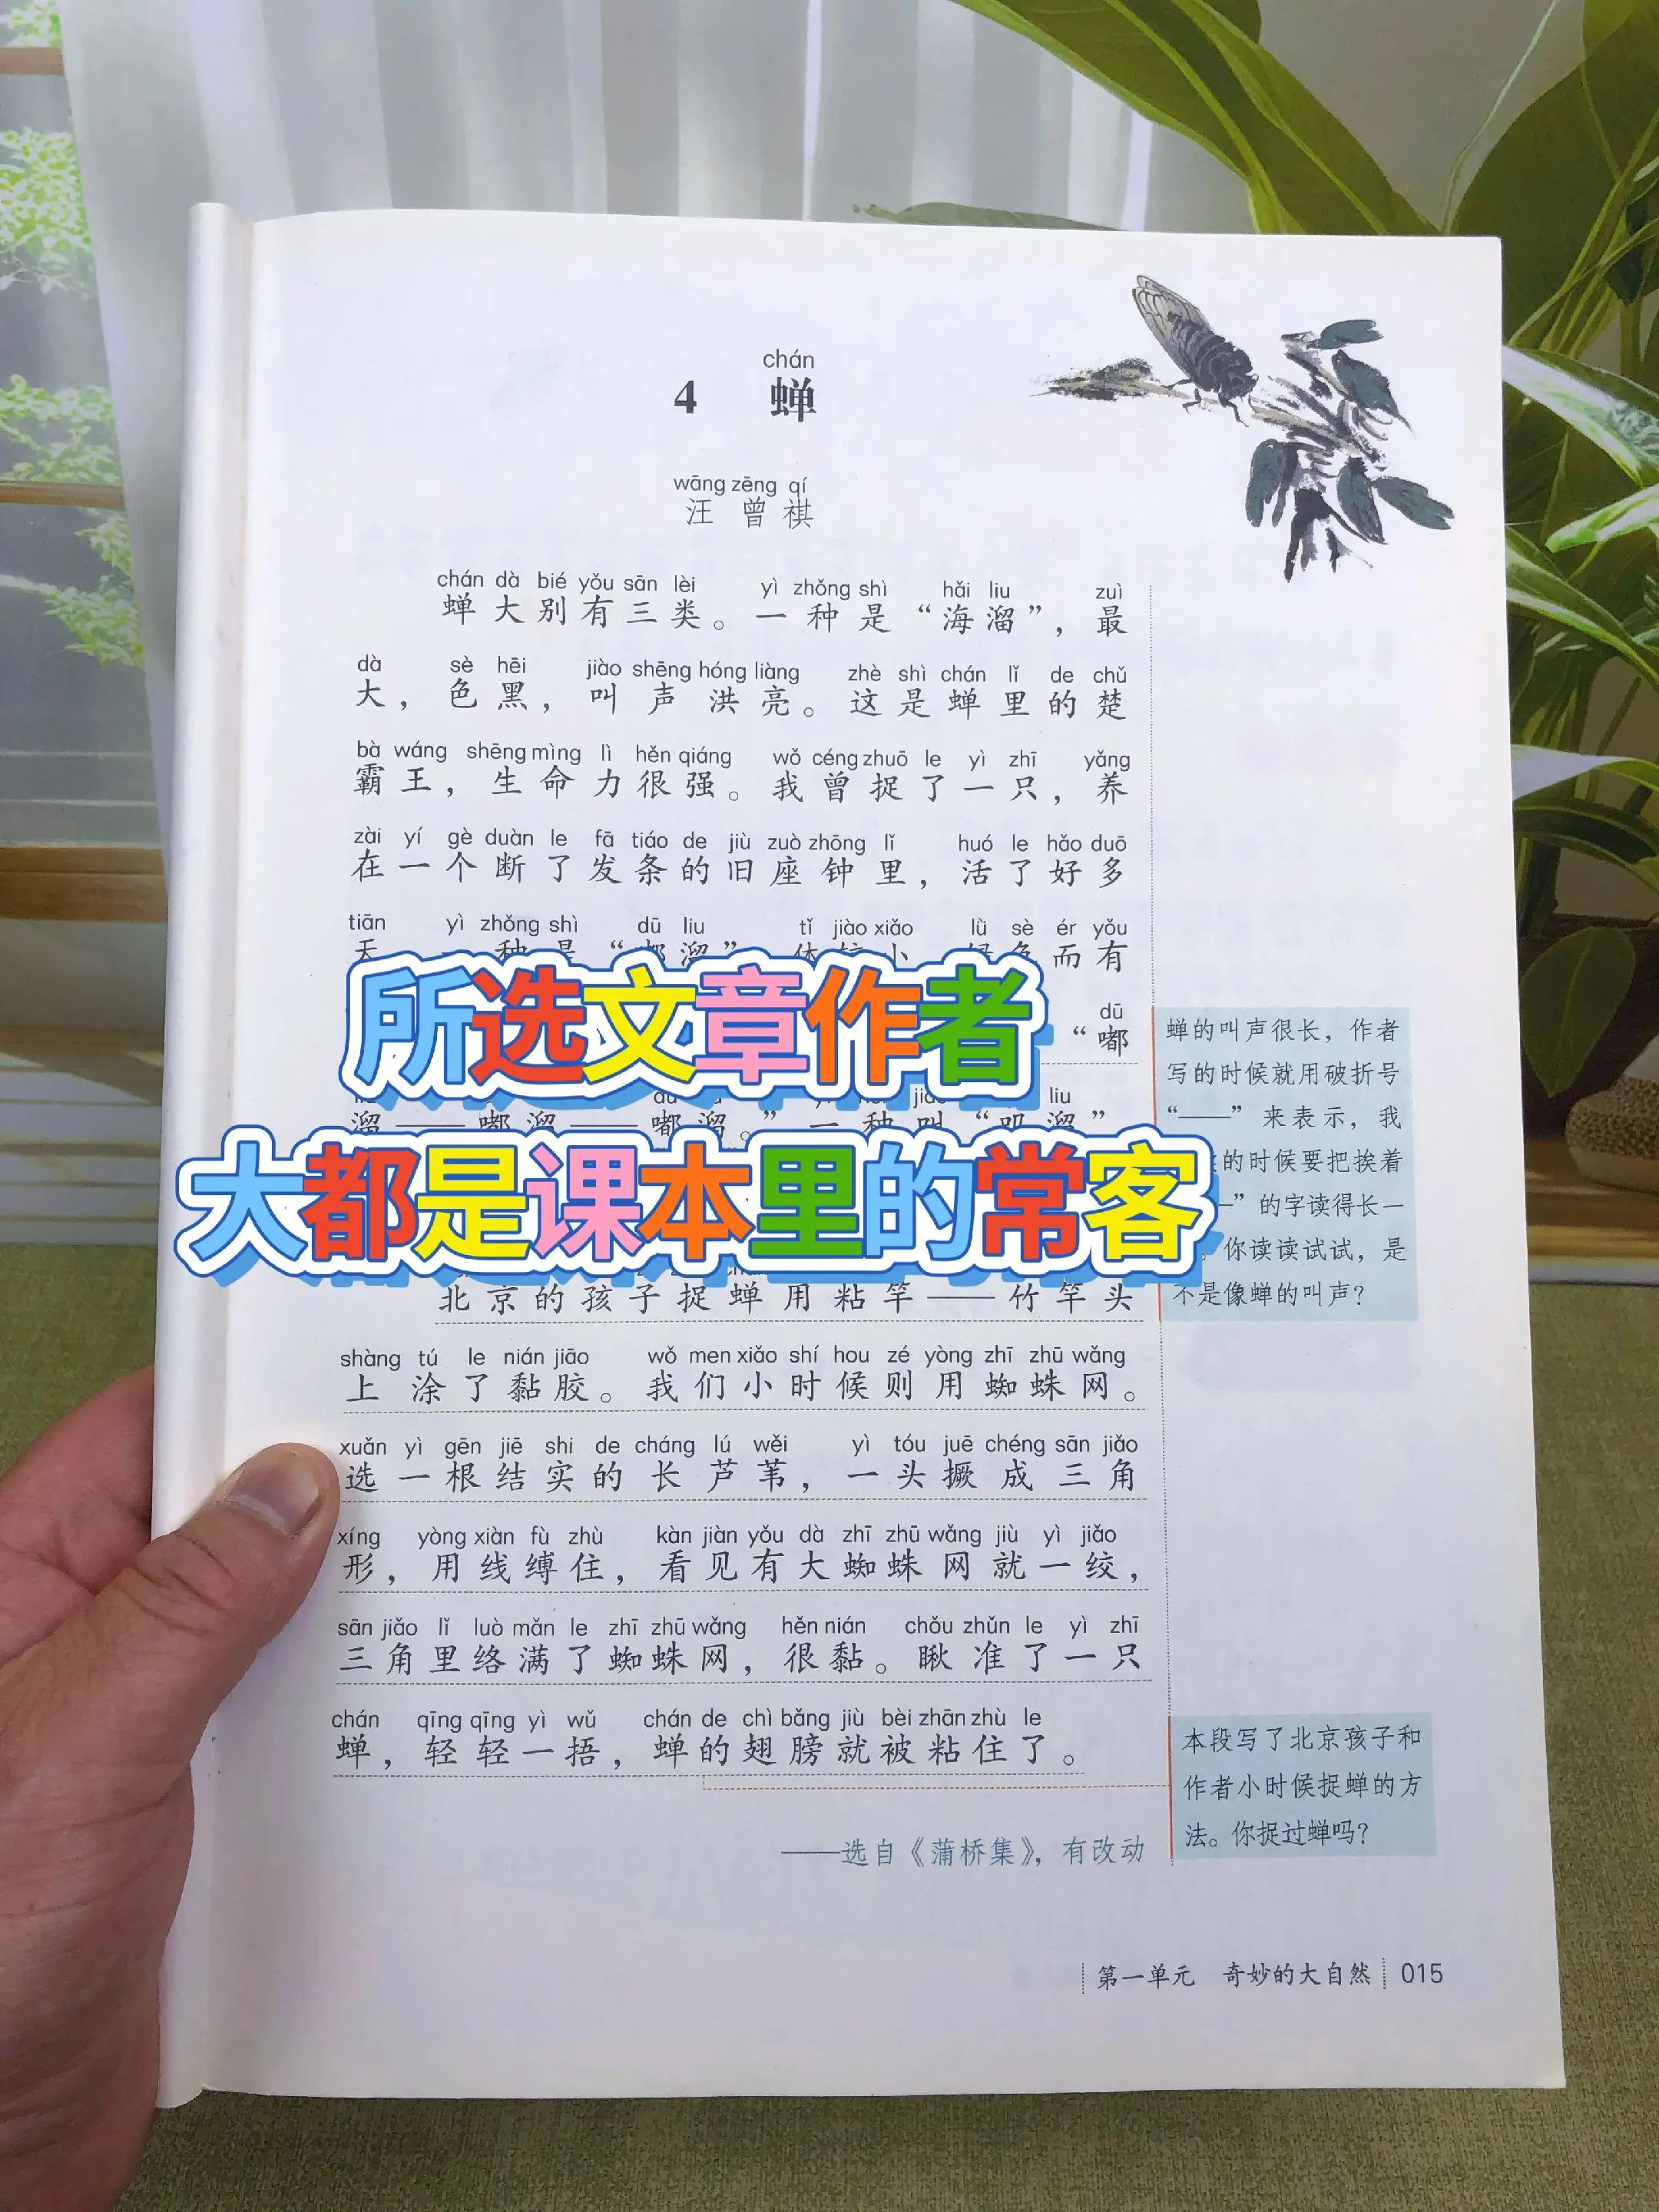 chán
4 蝉
wāng zēng qí
汪曾祺
chán dà bié yǒu sān lèi yì zhǒng shì hǎi liu zuì
蝉大别有三类。一种是“海溜”，最
dà sè hēi jiào shēng hóng liàng zhè shì chán lǐ de chǔ
大，色黑，叫声洪亮。这是蝉里的楚
bà wáng shēng mìng lì hěn qiáng wǒ céng zhuō le yì zhī yǎng
霸王，生命力很强。我曾捉了一只，养
zài yí gè duàn le fā tiáo de jiù zuò zhōng lǐ huó le hǎo duō
在一个断了发条的旧座钟里，活了好多
tiān yì zhǒng shì dū liu tǐ jiào xiǎo lǜ sè ér yǒu
天。一种是“嘟溜”，体较小，绿色而有
所选文章作者
dū
“嘟
liu
溜——嘟溜——嘟溜。”一种叫“叽溜”，
大都是课本里的常客
北京的孩子捉蝉用粘竿——竹竿头
shàng tú le nián jiāo wǒ men xiǎo shí hou zé yòng zhī zhū wǎng
上涂了黏胶。我们小时候则用蜘蛛网。
xuǎn yì gēn jiē shi de cháng lú wěi yì tóu juē chéng sān jiǎo
选一根结实的长芦苇，一头撅成三角
xíng yòng xiàn fù zhù kàn jiàn yǒu dà zhī zhū wǎng jiù yì jiǎo
形，用线缚住，看见有大蜘蛛网就一绞，
sān jiǎo lǐ luò mǎn le zhī zhū wǎng hěn nián chǒu zhǔn le yì zhī
三角里络满了蜘蛛网，很黏。瞅准了一只
chán qīng qīng yì wǔ chán de chì bǎng jiù bèi zhān zhù le
蝉，轻轻一捂，蝉的翅膀就被粘住了。
——选自《蒲桥集》，有改动
蝉的叫声很长，作者
写的时候就用破折号
“——”来表示，我
的时候要把挨着
—”的字读得长一
。你读读试试，是
不是像蝉的叫声？
本段写了北京孩子和
作者小时候捉蝉的方
法。你捉过蝉吗？
第一单元 奇妙的大自然 015